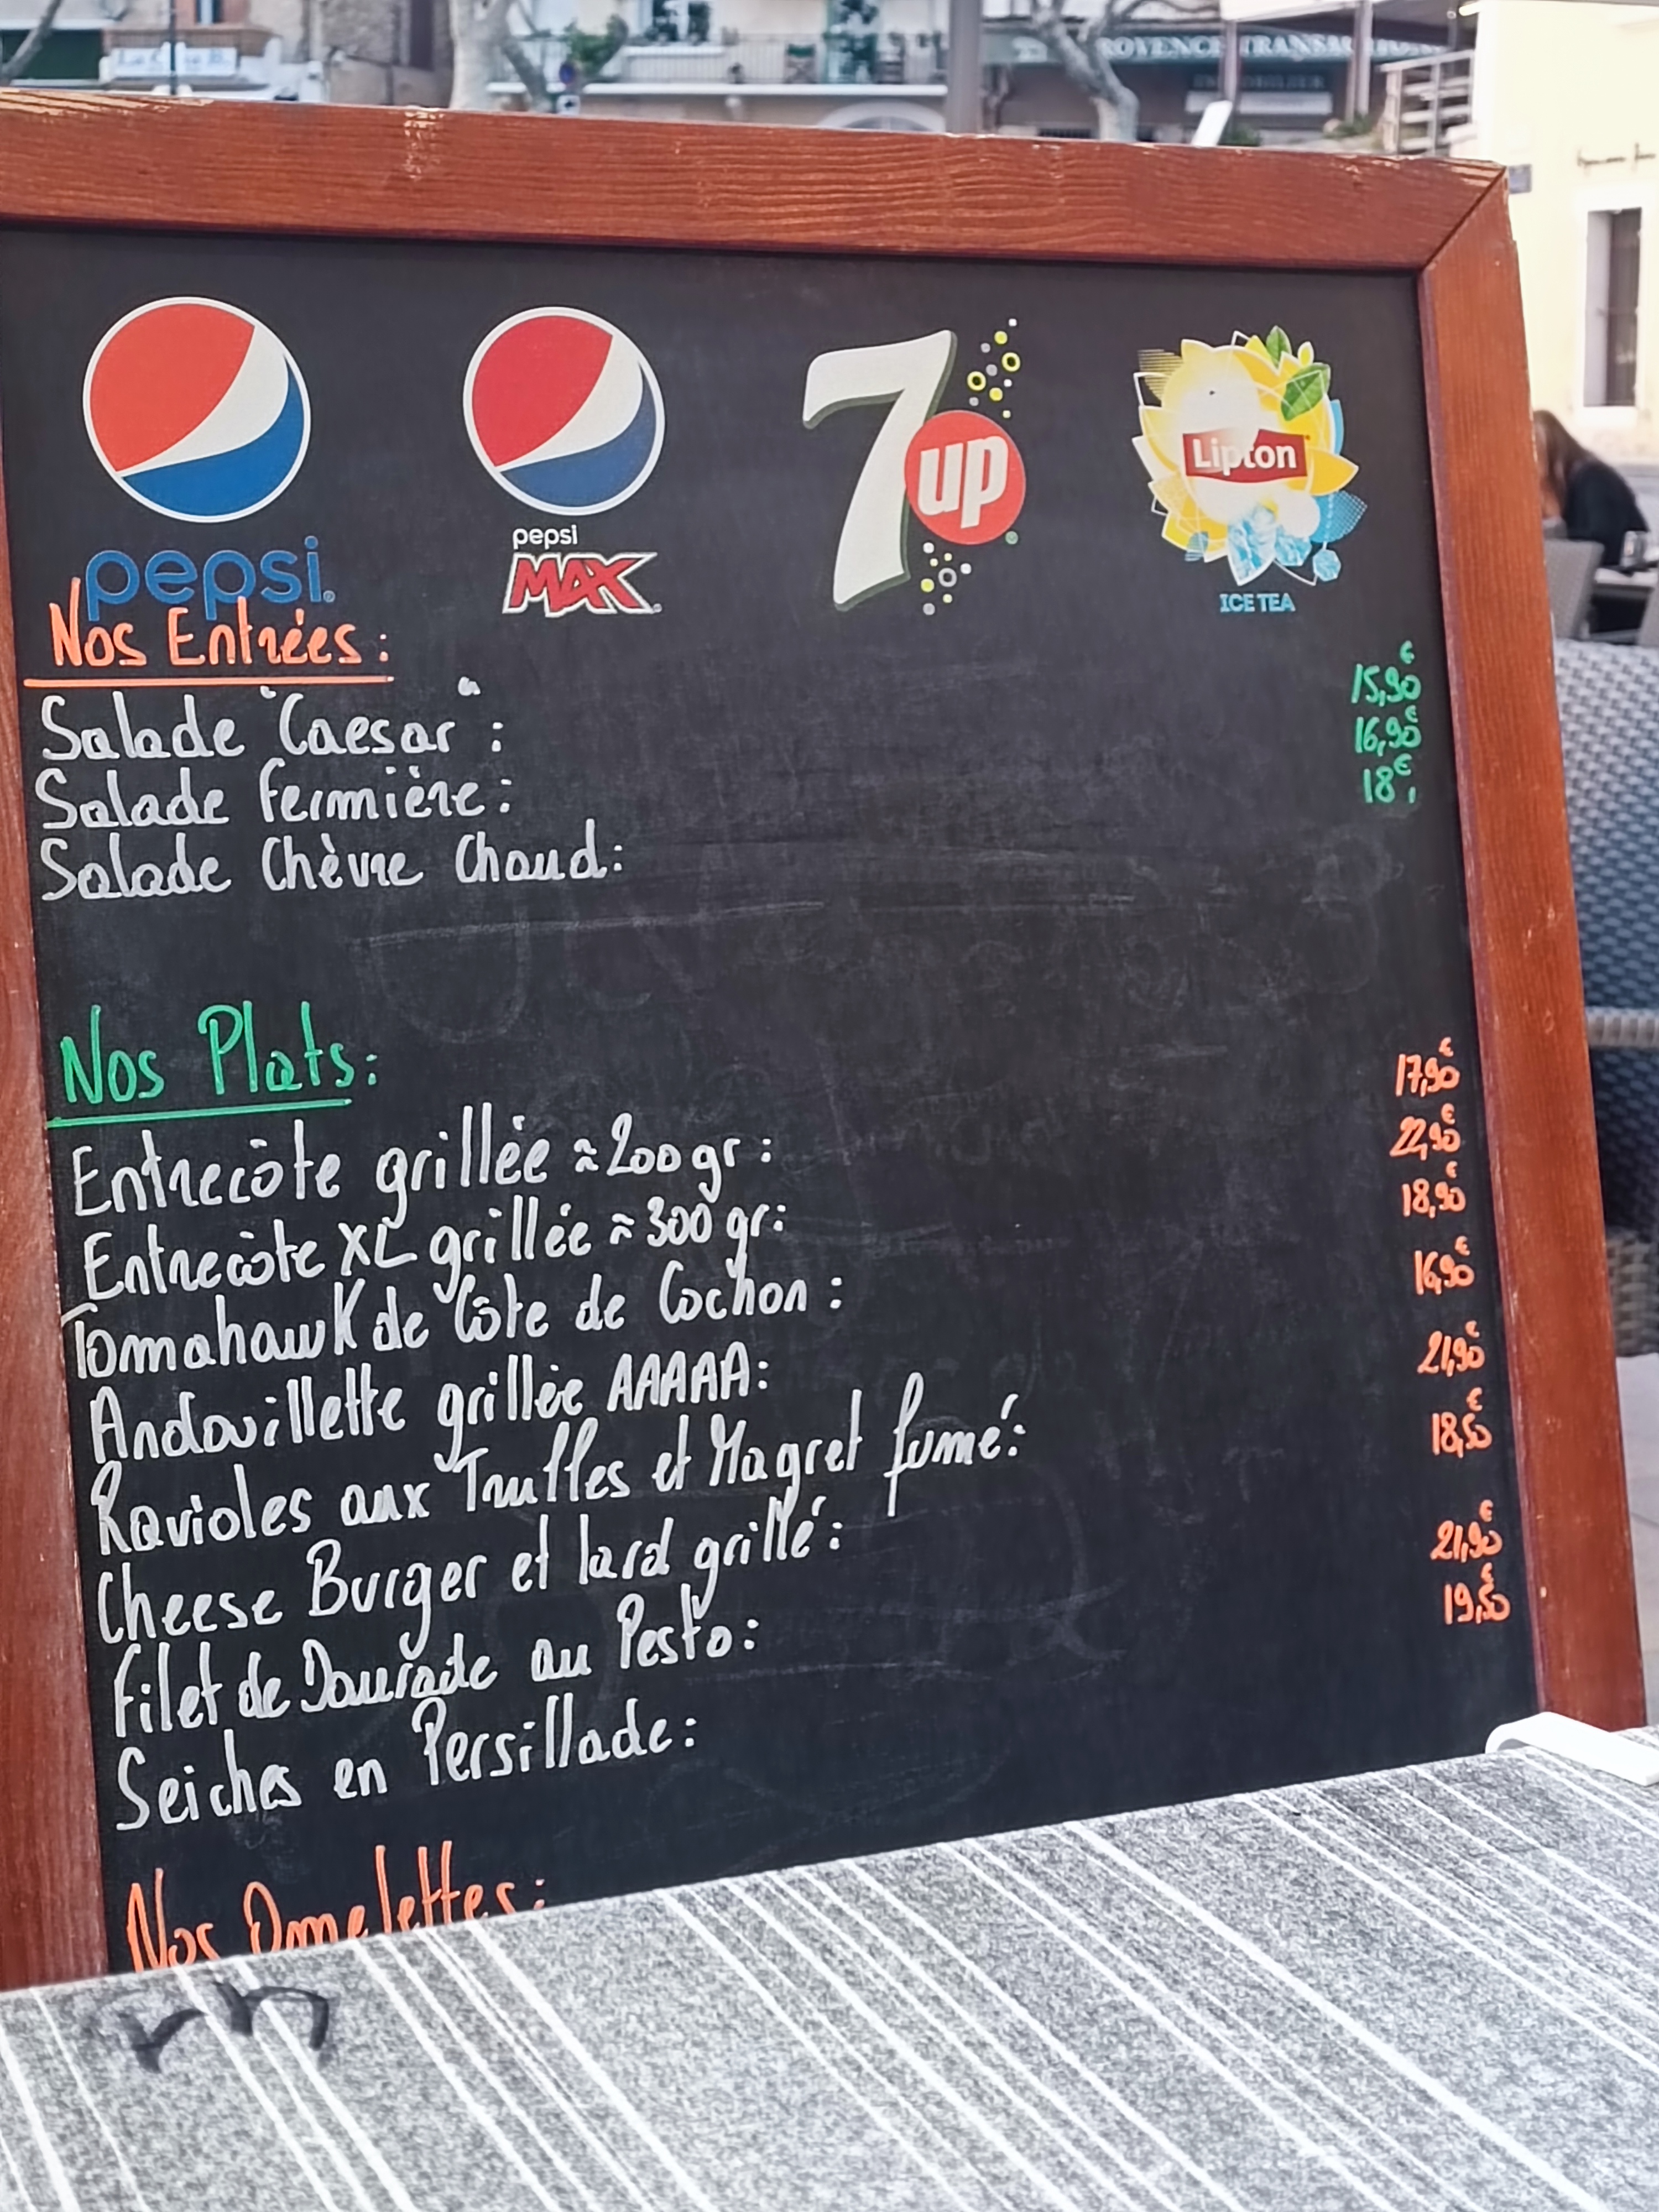 PROVENCE TRANSACTION
IMMOBILIER
pepsi
pepsi
MAX
7up
Lipton
ICE TEA
Nos Entrées:
Salade "Caesar": 15,90€
Salade fermière: 16,90€
Salade Chèvre Chaud: 18€
Nos Plats:
Entrecôte grillée ≈ 200 gr: 17,90€
Entrecôte XL grillée ≈ 300 gr: 22,90€
Tomahawk de Côte de Cochon: 18,90€
Andouillette grillée AAAAA: 16,90€
Ravioles aux Truffes et Magret fumé: 21,90€
Cheese Burger et lard grillé: 18,50€
Filet de Daurade au Pesto: 21,90€
Seiches en Persillade: 19,50€
Nos Omelettes: